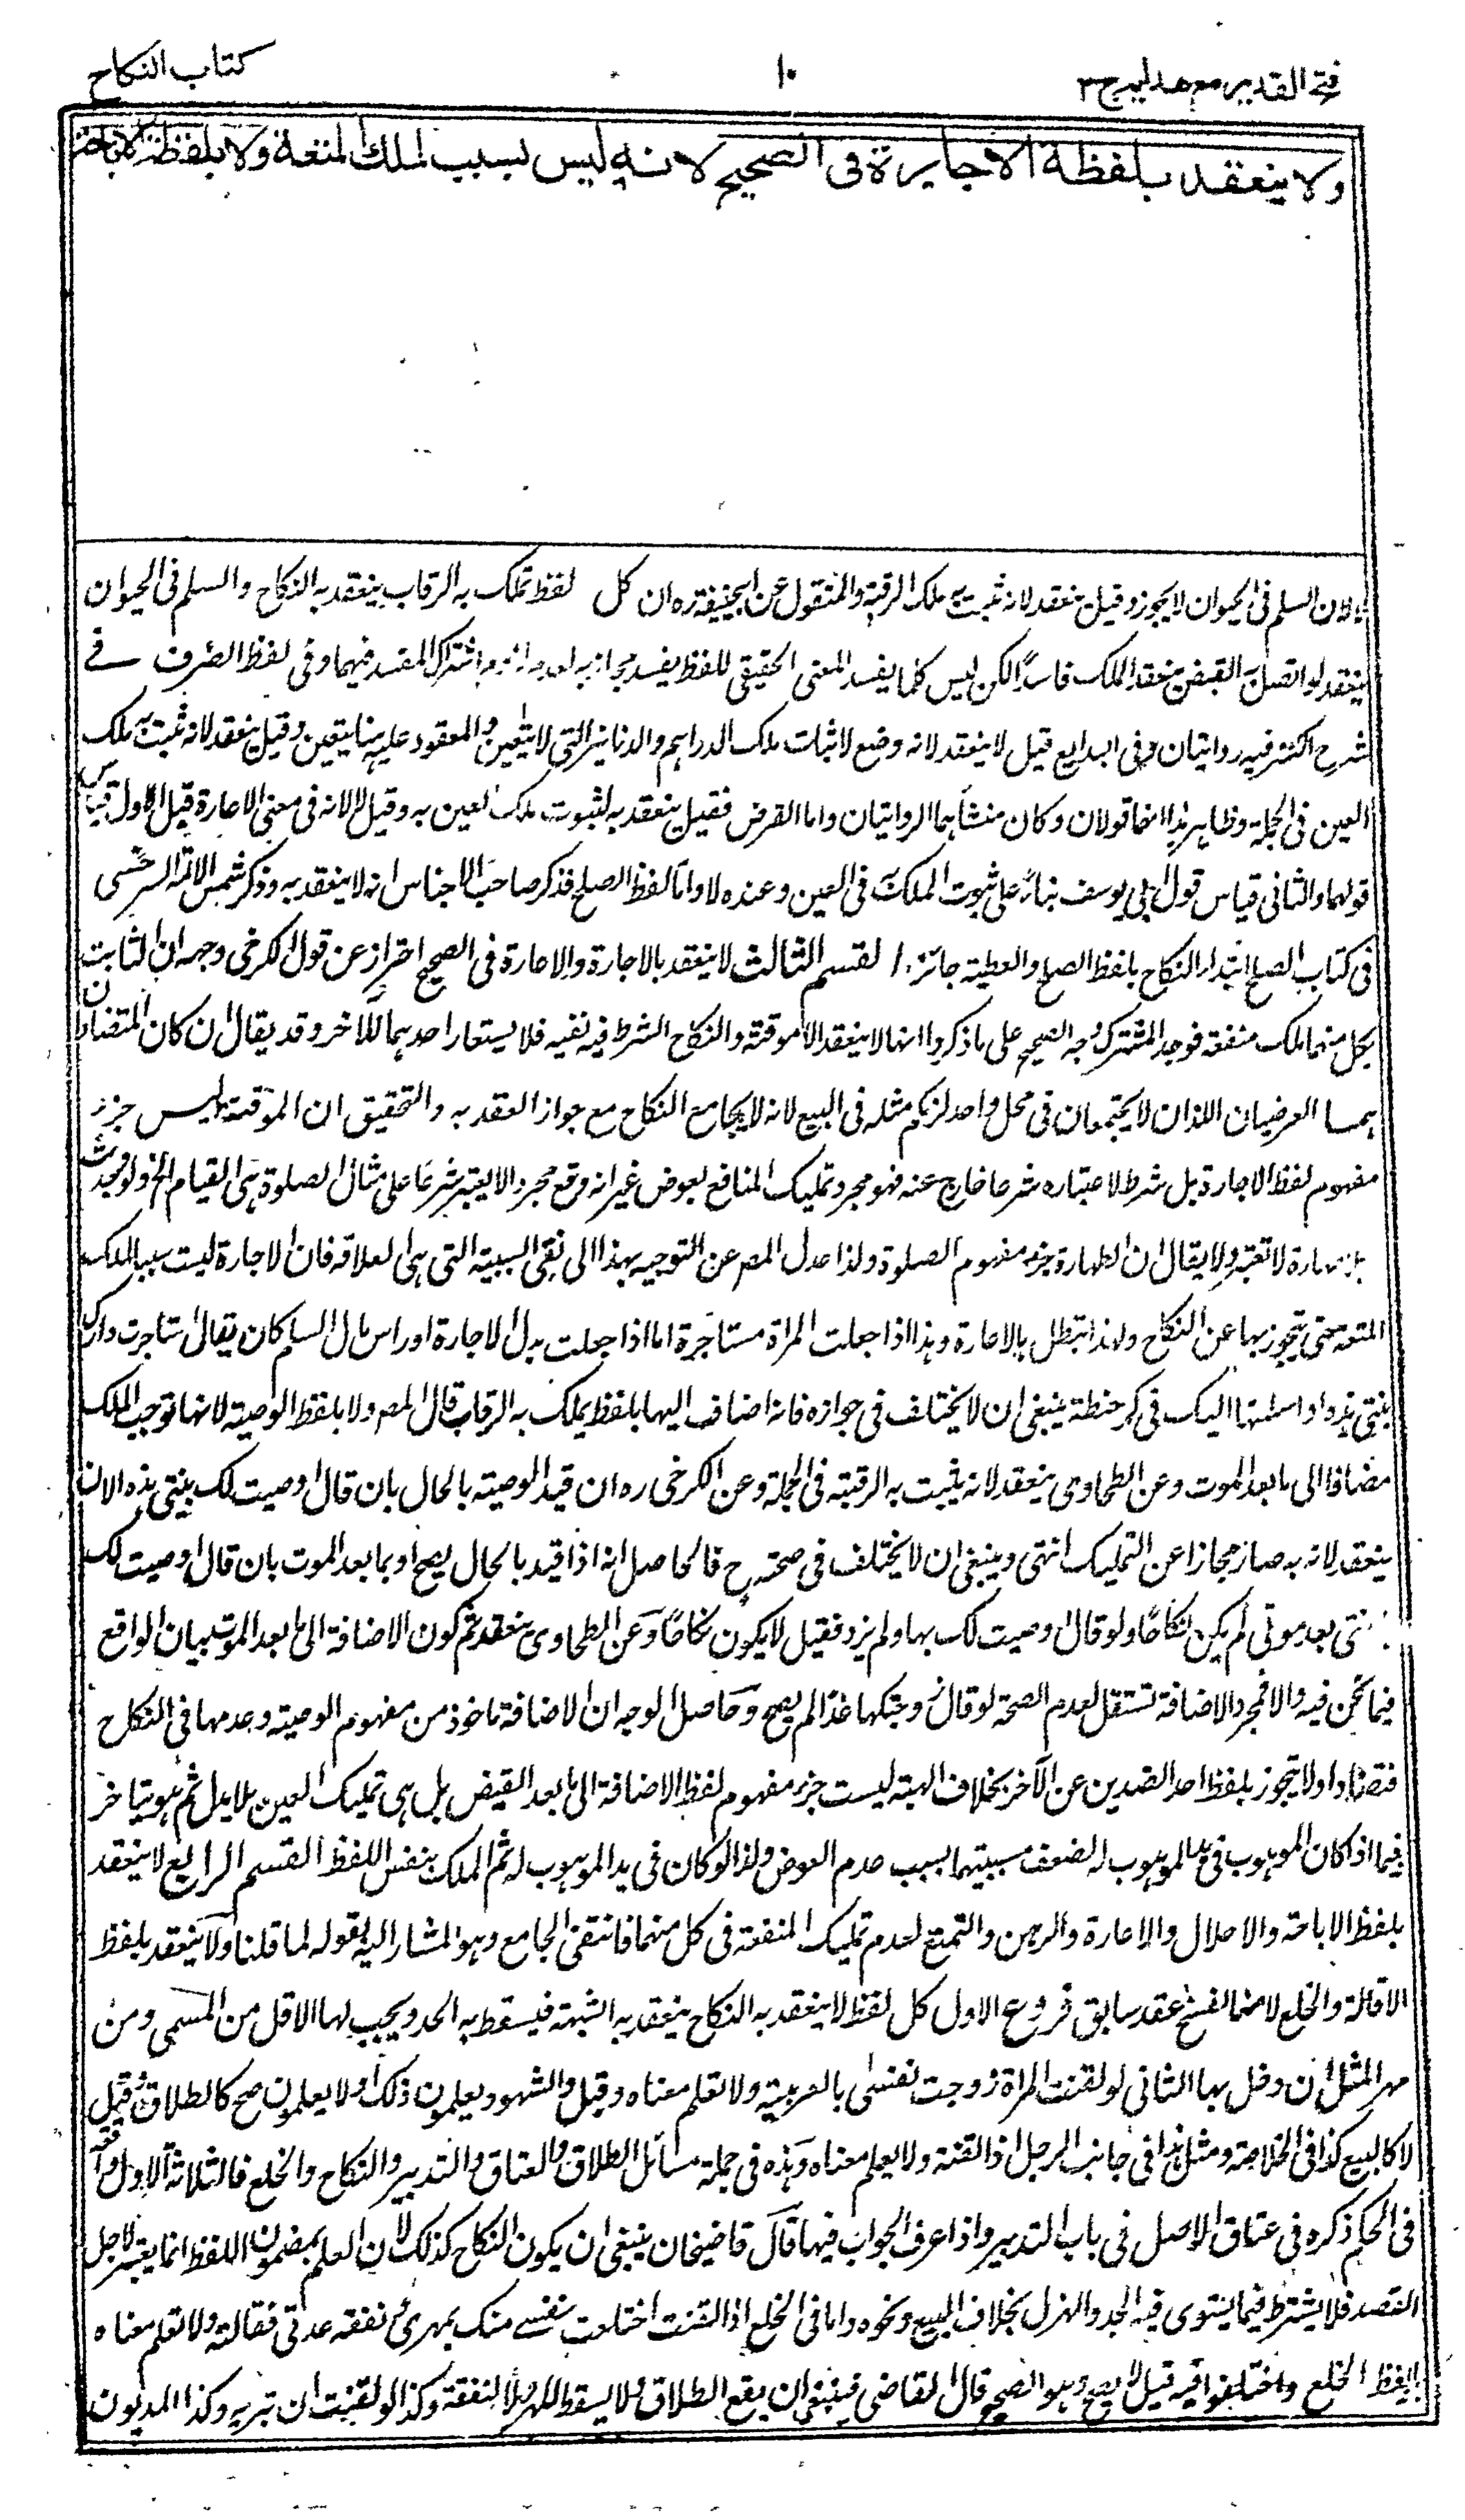 فتح القدير مع هدايه ج ٣
١٠
كتاب النكاح
ولا ينعقد بلفظة الاجارة فى الصحيح لانه ليس بسبب لملك المتعة ولا بلفظة الاباحة
لان السلم فى الحيوان لا يجوز وقيل ينعقد لانه ثبت به ملك الرقبة والمنقول عن ابيحنيفة ره ان كل لفظ تملك به الرقاب ينعقد به النكاح والسلم فى الحيوان
ينعقد لو اتصل به القبض ينعقد الملك فاسدا لكن ليس كلما يفسد المعنى الحقيقى للفظ يفسد مجازيه لعدم لزوم اشتراك المفسد فيهما وفى لفظ الصرف فے
شرح الكنز فيه روايتان وفى البدايع قيل لا ينعقد لانه وضع لاثبات ملك الدراهم والدنانير التى لا يتعين والمعقود عليه هنا يتعين وقيل ينعقد لانه ثبت به ملك
العين فى الجملة وظاهر هذا انهما قولان وكان منشأهما الروايتان واما القرض فقيل ينعقد به لثبوت ملك العين به وقيل لا لانه فى معنى الاعارة قيل الاول قياس
قولهما والثانى قياس قول ابى يوسف بناء على ثبوت الملك به فى العين وعنده لا واما لفظ الصلح فذكر صاحب الاجناس انه لا ينعقد به وذكر شمس الائمه السرخسى
فى كتاب الصلح ابتداء النكاح بلفظ الصلح والعطية جائز القسم الثالث لا ينعقد بالاجارة والاعارة فى الصحيح احتراز عن قول الكرخى وجهه ان الثابت
بكل منهما ملك منفعة فوجد المشترك وجه الصحيح على ما ذكروا انها لا ينعقد الا موقتة والنكاح الشرط فيه نفيه فلا يستعار احدهما للآخر وقد يقال ان كان المتضادان
هما العرضيان اللذان لا يجتمعان فى محل واحد لزمكم مثله فى البيع لانه لا يجامع النكاح مع جواز العقد به والتحقيق ان الموقتة ليس جزء
مفهوم لفظ الاجارة بل شرط لاعتباره شرعا خارج عنه فهو مجرد تمليك المنافع بعوض غير انه وقع مجرد الا يعتبر شرعا على مثال الصلوة هى القيام الخ ولو وجدت
بلا طهارة لا تعتبر ولا يقال ان الطهارة جزء مفهوم الصلوة ولذا عدل المص عن التوجيه بهذا الى نفى السببية التى هى العلاقة فان الاجارة ليست سببا لملك
المتعة حتى يتجوز بها عن النكاح ولهذا تبطل بالاعارة وهذا اذا جعلت المراة مستاجرة اما اذا جعلت بدل الاجارة او راس مال السلم كان يقال استاجرت دارك
بنتى هذه او اسلمتها اليك فى كر حنطة ينبغى ان لا يختلف فى جوازه فانه اضاف اليها بلفظ يملك به الرقاب قال المص ولا بلفظ الوصية لانها توجب الملك
مضافا الى ما بعد الموت وعن الطحاوى ينعقد لانه يثبت به الرقبة فى الجملة وعن الكرخى ره ان قيد الوصية بالحال بان قال اوصيت لك ببنتى هذه الان
ينعقد لانه به صار مجازا عن التمليك انتهى وينبغى ان لا يختلف فى صحته ح فالحاصل انه اذا قيد بالحال يصح او بما بعد الموت بان قال اوصيت لك
ببنتى بعد موتى لم يكن نكاحا ولو قال اوصيت لك بها ولم يزد فقيل لا يكون نكاحا وعن الطحاوى ينعقد ثم كون الاضافة الى ما بعد الموت بيان الواقع
فيما نحن فيه والا فمجرد الاضافة تستقل لعدم الصحة لو قال زوجتكها غدا لم يصح وحاصل الوجه ان الاضافة ماخوذ من مفهوم الوصية وعدمها فى النكاح
فتضادا ولا يتجوز بلفظ احد الضدين عن الآخر بخلاف الهبة ليست جزء مفهوم لفظ الاضافة الى ما بعد القبض بل هى تمليك العين بلا بدل ثم هو يتاخر
فيما اذا كان الموهوب فى يد الموهوب له لضعف سببيتهما بسبب عدم العوض ولذا لو كان فى يد الموهوب له ثم الملك بنفس اللفظ القسم الرابع لا ينعقد
بلفظ الاباحة والاحلال والاعارة والرهن والتمتع لعدم تمليك المنفعة فى كل منهما فانتفى الجامع وهو المشار اليه بقوله لما قلنا ولا ينعقد بلفظ
الاقالة والخلع لانهما لفسخ عقد سابق فروع الاول كل لفظ لا ينعقد به النكاح ينعقد به الشبهة فيسقط به الحد ويجب لها الاقل من المسمى ومن
مهر المثل ان دخل بها الثانى لو لقنت المراة زوجت نفسى بالعربية ولا تعلم معناه وقبل والشهود يعلمون ذلك او لا يعلمون صح كالطلاق وقيل
لا كالبيع كذا فى الخلاصة ومثل هذا فى جانب الرجل اذا لقنه ولا يعلم معناه وهذه فى جملة مسائل الطلاق والعتاق والتدبير والنكاح والخلع فالثلاثة الاول واقعة
فى الحكم ذكره فى عتاق الاصل فى باب التدبير واذا عرف الجواب فيها قال قاضيخان ينبغى ان يكون النكاح كذلك لان العلم بمضمون اللفظ انما يعتبر لاجل
القصد فلا يشترط فيما يستوى فيه الجد والهزل بخلاف البيع ونحوه واما فى الخلع اذا لقنت اختلعت نفسے منك بمهرى ونفقة عدتى فقالته ولا تعلم معناه
بلفظ الخلع واختلفوا فيه قيل لا يصح وهو الصحيح قال القاضى فينبغى ان يقع الطلاق ولا يسقط المهر ولا النفقة وكذا لو لقنت ان تبريه وكذا المديون